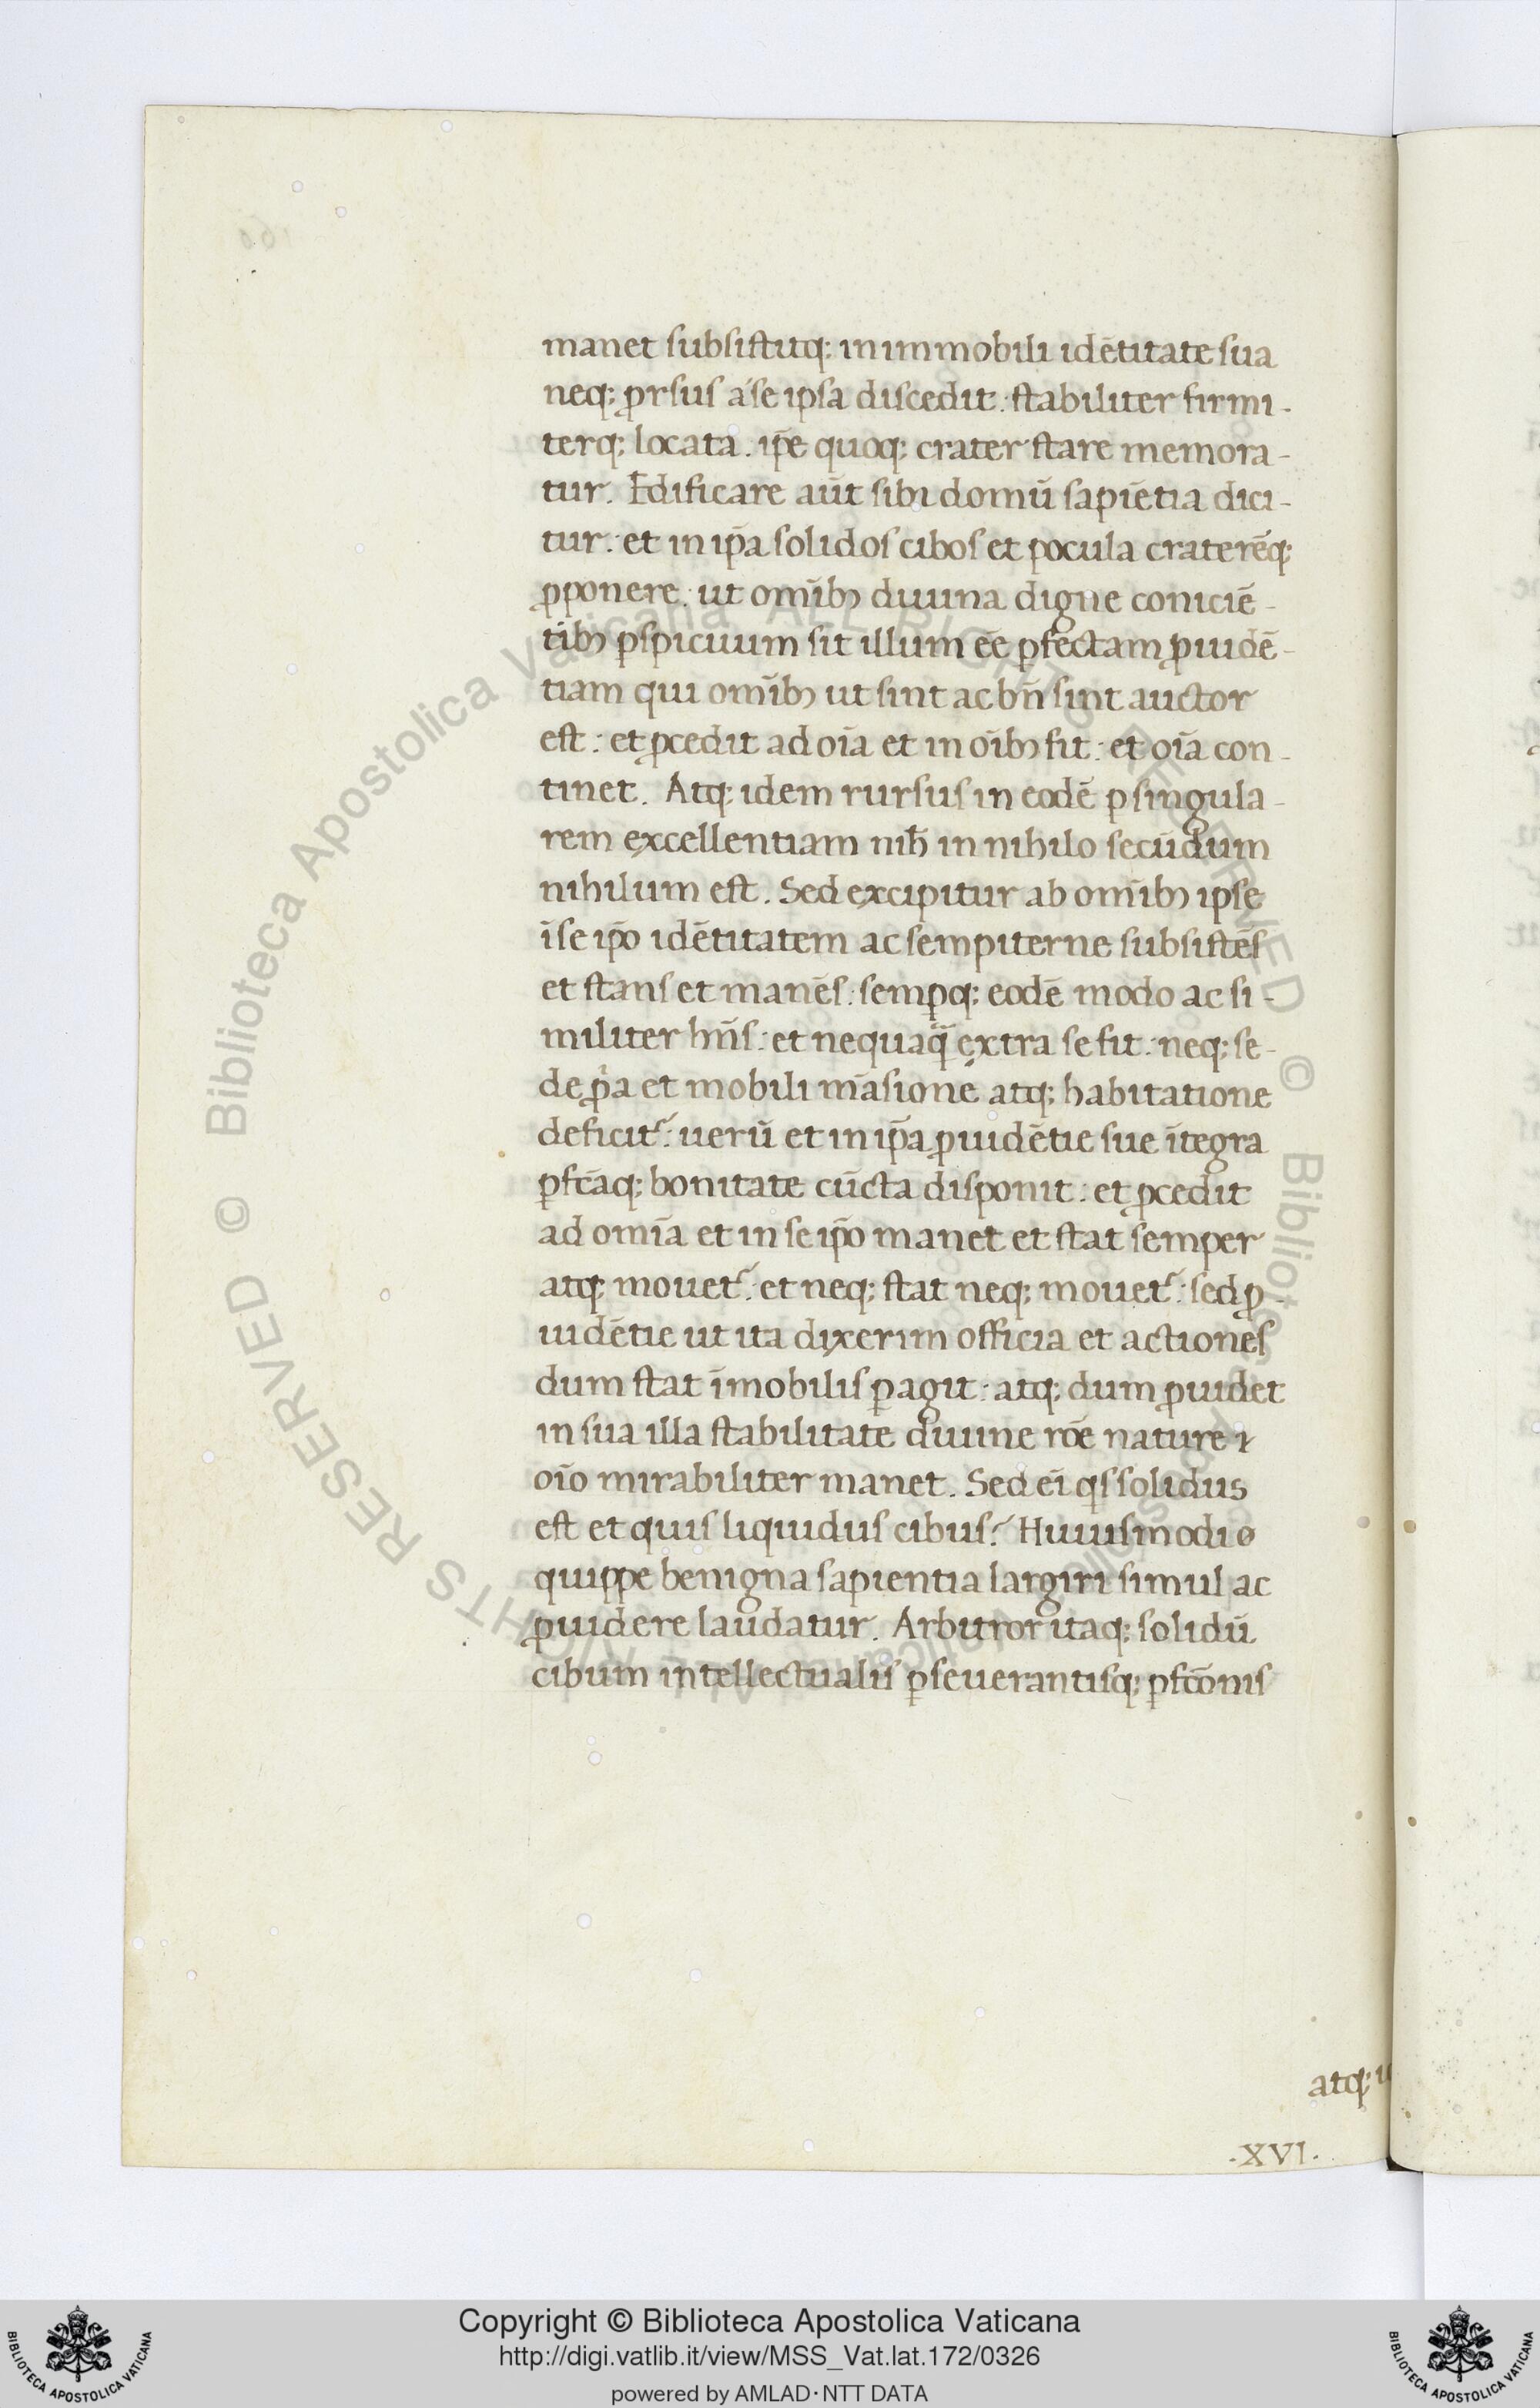 manet subsistitq; in immobili idētitate sua
neq; ꝓrsus a se ipsa discedit: stabiliter firmi-
terq; locata. ip̄e quoq; crater stare memora-
tur. Edificare aūt sibi domū sapiētia dici-
tur: et in ip̄a solidos cibos et pocula craterēq;
ꝓponere: ut omībꝫ diuina digne coniciē-
tibꝫ ꝑspicuum sit illum ēē ꝑfectam ꝓuidē-
tiam qui omībꝫ ut sint ac bn̄ sint auctor
est: et ꝓcedit ad oīa et in oībꝫ fit: et oīa con-
tinet. Atq; idem rursus in eodē ꝑ singula-
rem excellentiam nih̄ in nihilo secūdum
nihilum est. Sed excipitur ab omībꝫ ipse
ī se ip̄o idētitatem ac sempiterne subsistēs
et stans et manēs: semꝑq; eodē modo ac si-
militer hn̄s: et nequaq̄ extra se fit: neq; se-
de ꝓp̄a et mobili māsione atq; habitatione
deficit᷑: uerū et in ip̄a ꝓuidētie sue ītegra
ꝑfc̄aq; bonitate cūcta disponit: et ꝓcedit
ad omīa et in se ip̄o manet et stat semper
atq; mouet᷑: et neq; stat neq; mouet᷑: sed ꝓ
uidētie ut ita dixerim officia et actiones
dum stat īmobilis ꝑagit: atq; dum ꝓuidet
in sua illa stabilitate diuine rōe nature ⁊
oīo mirabiliter manet. Sed eī qs solidus
est et quis liquidus cibus? Huiusmodi
quippe benigna sapientia largiri simul ac
ꝓuidere laudatur. Arbitror itaq; solidū
cibum intellectualis ꝑseuerantisq; ꝑfc̄onis
atq;
.XVI.
Copyright © Biblioteca Apostolica Vaticana
http://digi.vatlib.it/view/MSS_Vat.lat.172/0326
powered by AMLAD·NTT DATA
BIBLIOTECA APOSTOLICA VATICANA
BIBLIOTECA APOSTOLICA VATICANA
© Biblioteca Apostolica Vaticana ALL RIGHTS RESERVED © Biblioteca Apostolica Vaticana ALL RIGHTS RESERVED